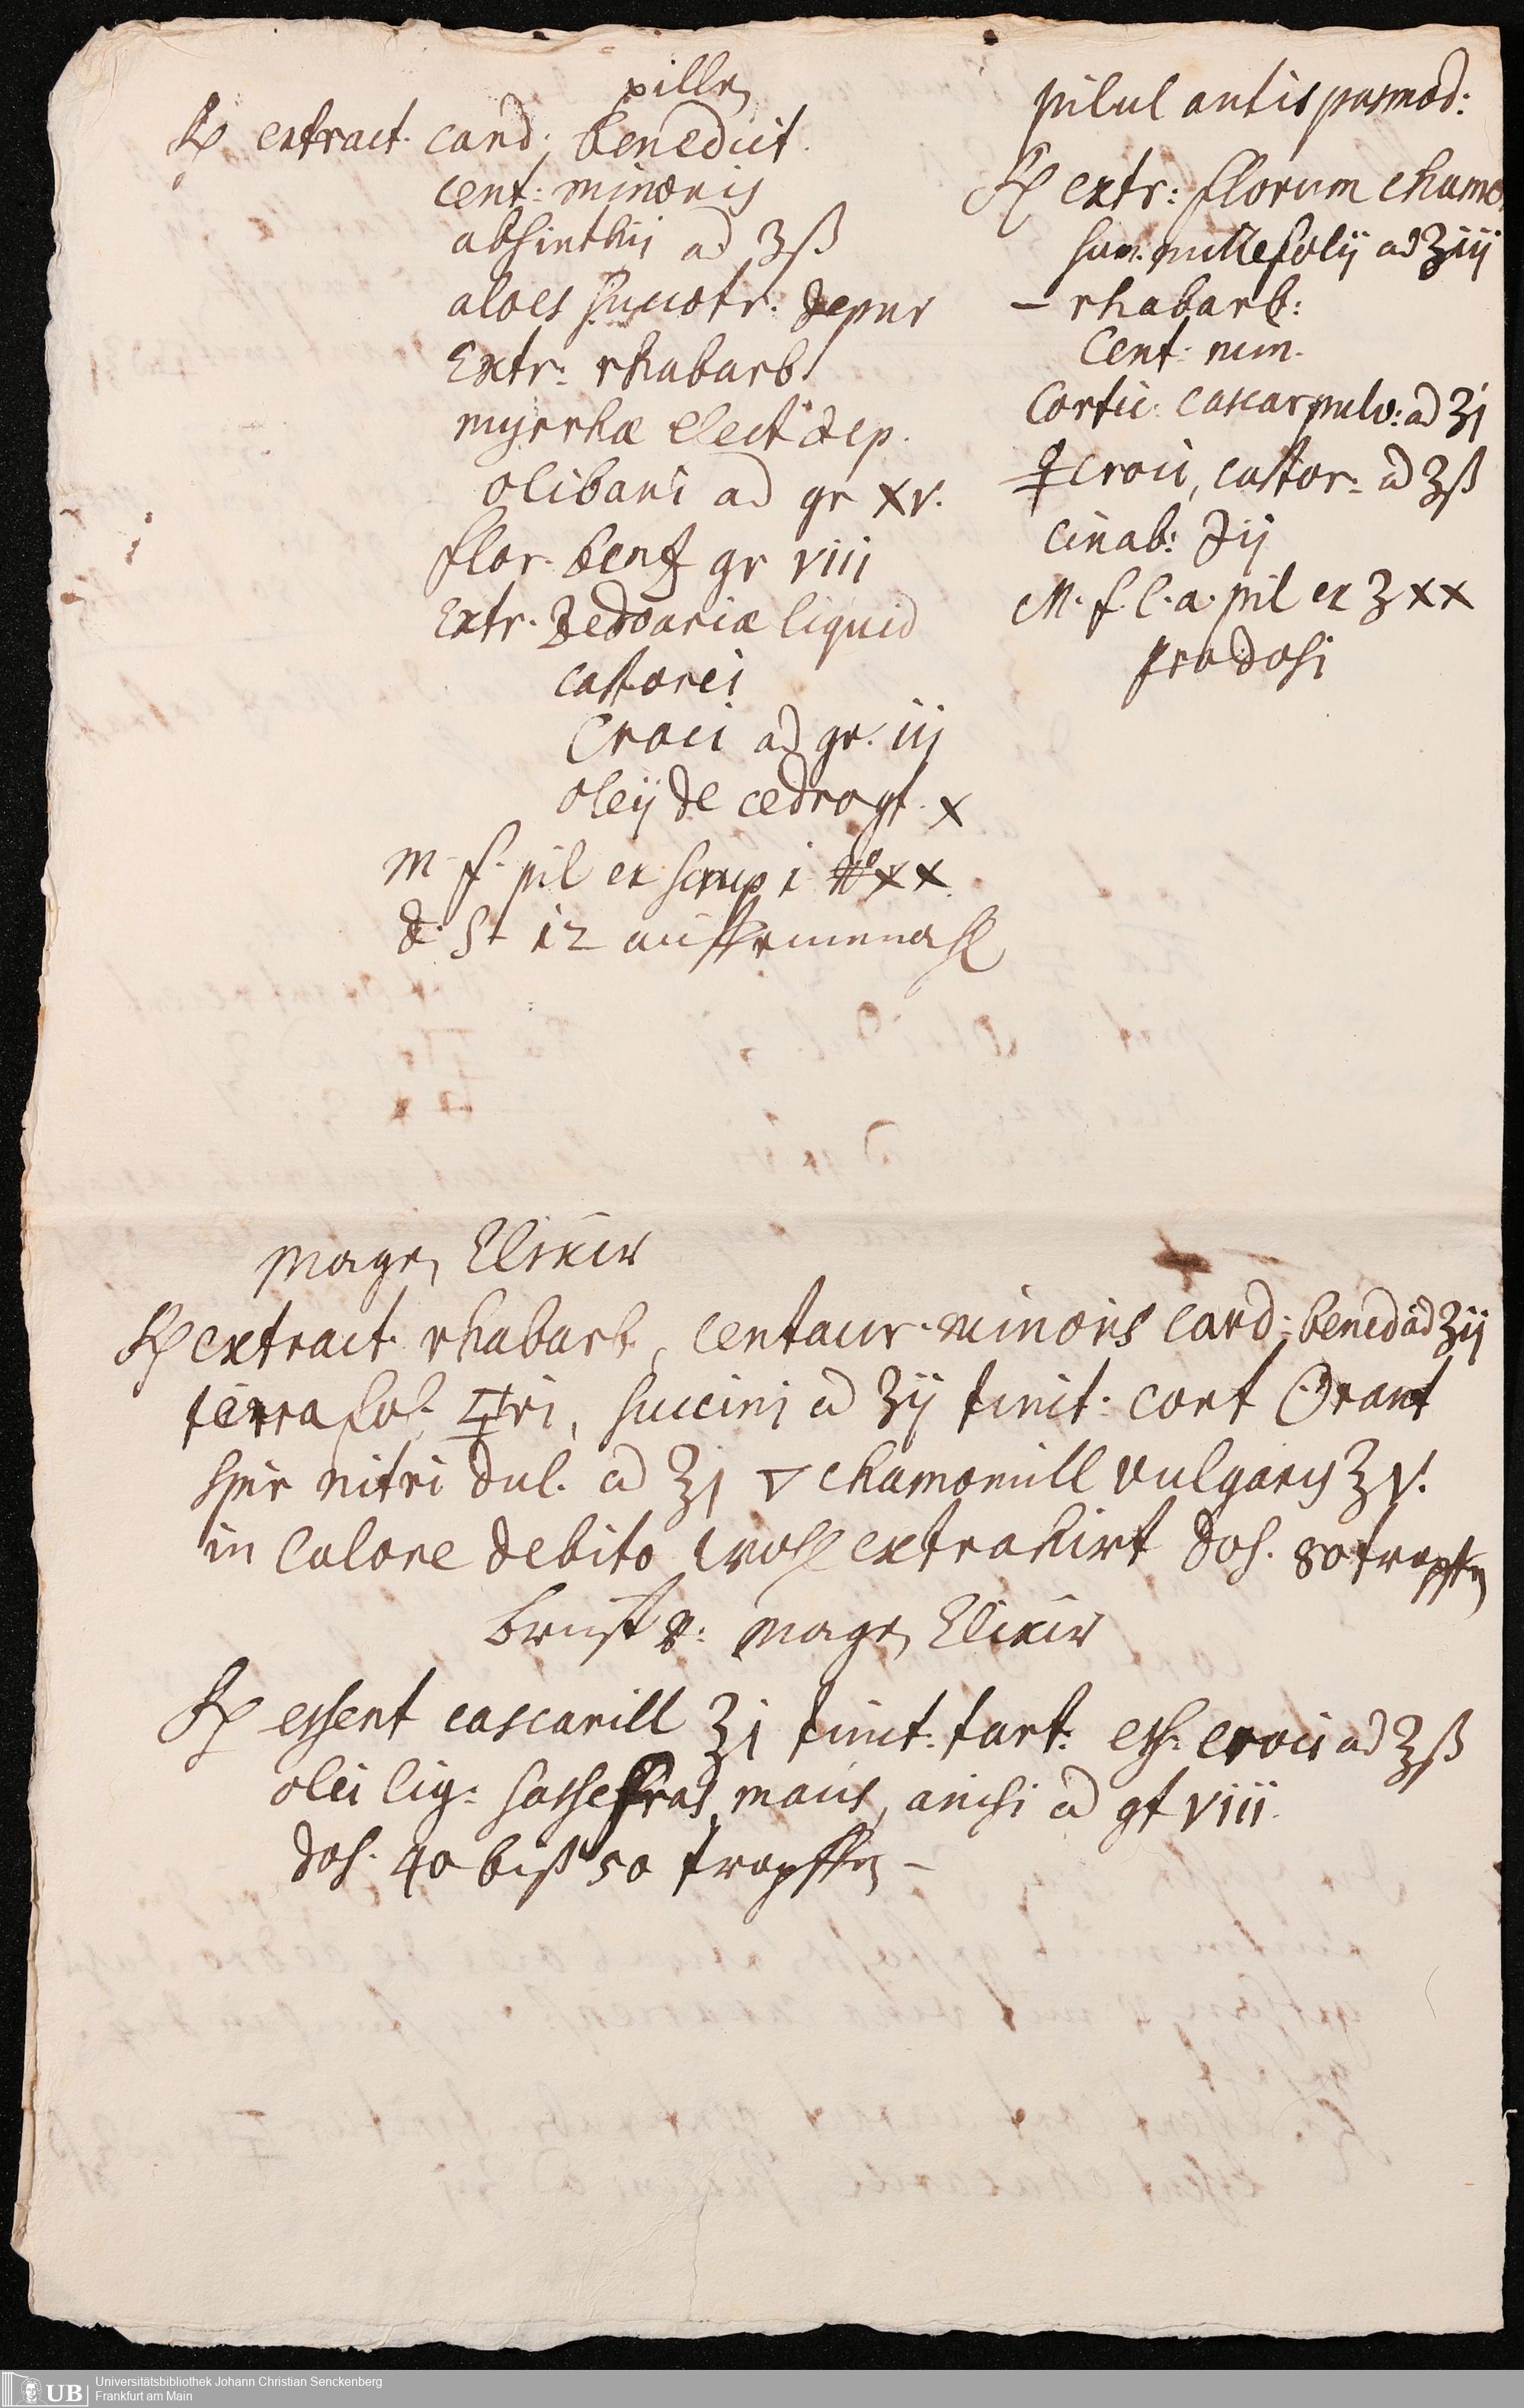 pillen
℞ extract. card: benedict.
cent: minoris
absinthij ad ʒß
aloes succotr. depur
Extr: rhabarb
myrrhæ elect dep.
olibani ad gr xv.
flor. benz gr viii
Extr. Zedoariæ liquid
castorei
Croci ad gr. iij
oleij de cedro gt. x
M. f. pil ex scrup i No xx
d. S. 12 auff einmahl
pilul antispasmod:
℞ extr: florum chamo
sum. millefolij ad ʒiij
– rhabarb:
Cent: min.
Cortic. cascar pulv: ad ʒj
croci, castor: ad ʒß
cinab: ℈ij
M. f. l. a. pil ex ʒ xx
pro dosi
Magen Elixir
℞ extract. rhabarb, centaur. minoris card: bened ad ʒij
terra fol. ri, succini ad ʒij tinct: cort Orant
spir nitri dul. ad ʒj ▽ chamomill vulgaris ʒv.
in calore debito wohl extrahirt dos. 80 tropffen
brust u: magen Elixir
℞ essent cascarill ʒj tinct: tart: ess. croci ad ʒß
olei lig: sassefras, macis, anisi ad gt viii.
dos. 40 biß 50 tropffen –
UB Universitätsbibliothek Johann Christian Senckenberg
Frankfurt am Main